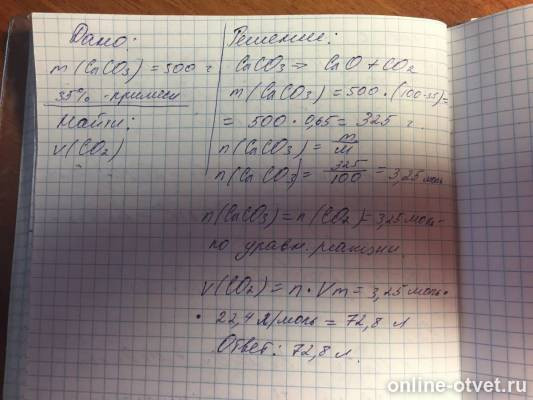 Дано:
m(CaCO3) = 500 г
35% - примеси
Найти:
v(CO2)
Решение:
CaCO3 => CaO + CO2
m(CaCO3) = 500 · (100-35) =
= 500 · 0,65 = 325 г.
n(CaCO3) = m/M
n(CaCO3) = 325/100 = 3,25 моль
n(CaCO3) = n(CO2) = 3,25 моль -
по уравн. реакции
v(CO2) = n · Vm = 3,25 моль ·
· 22,4 л/моль = 72,8 л
Ответ: 72,8 л.
online-otvet.ru